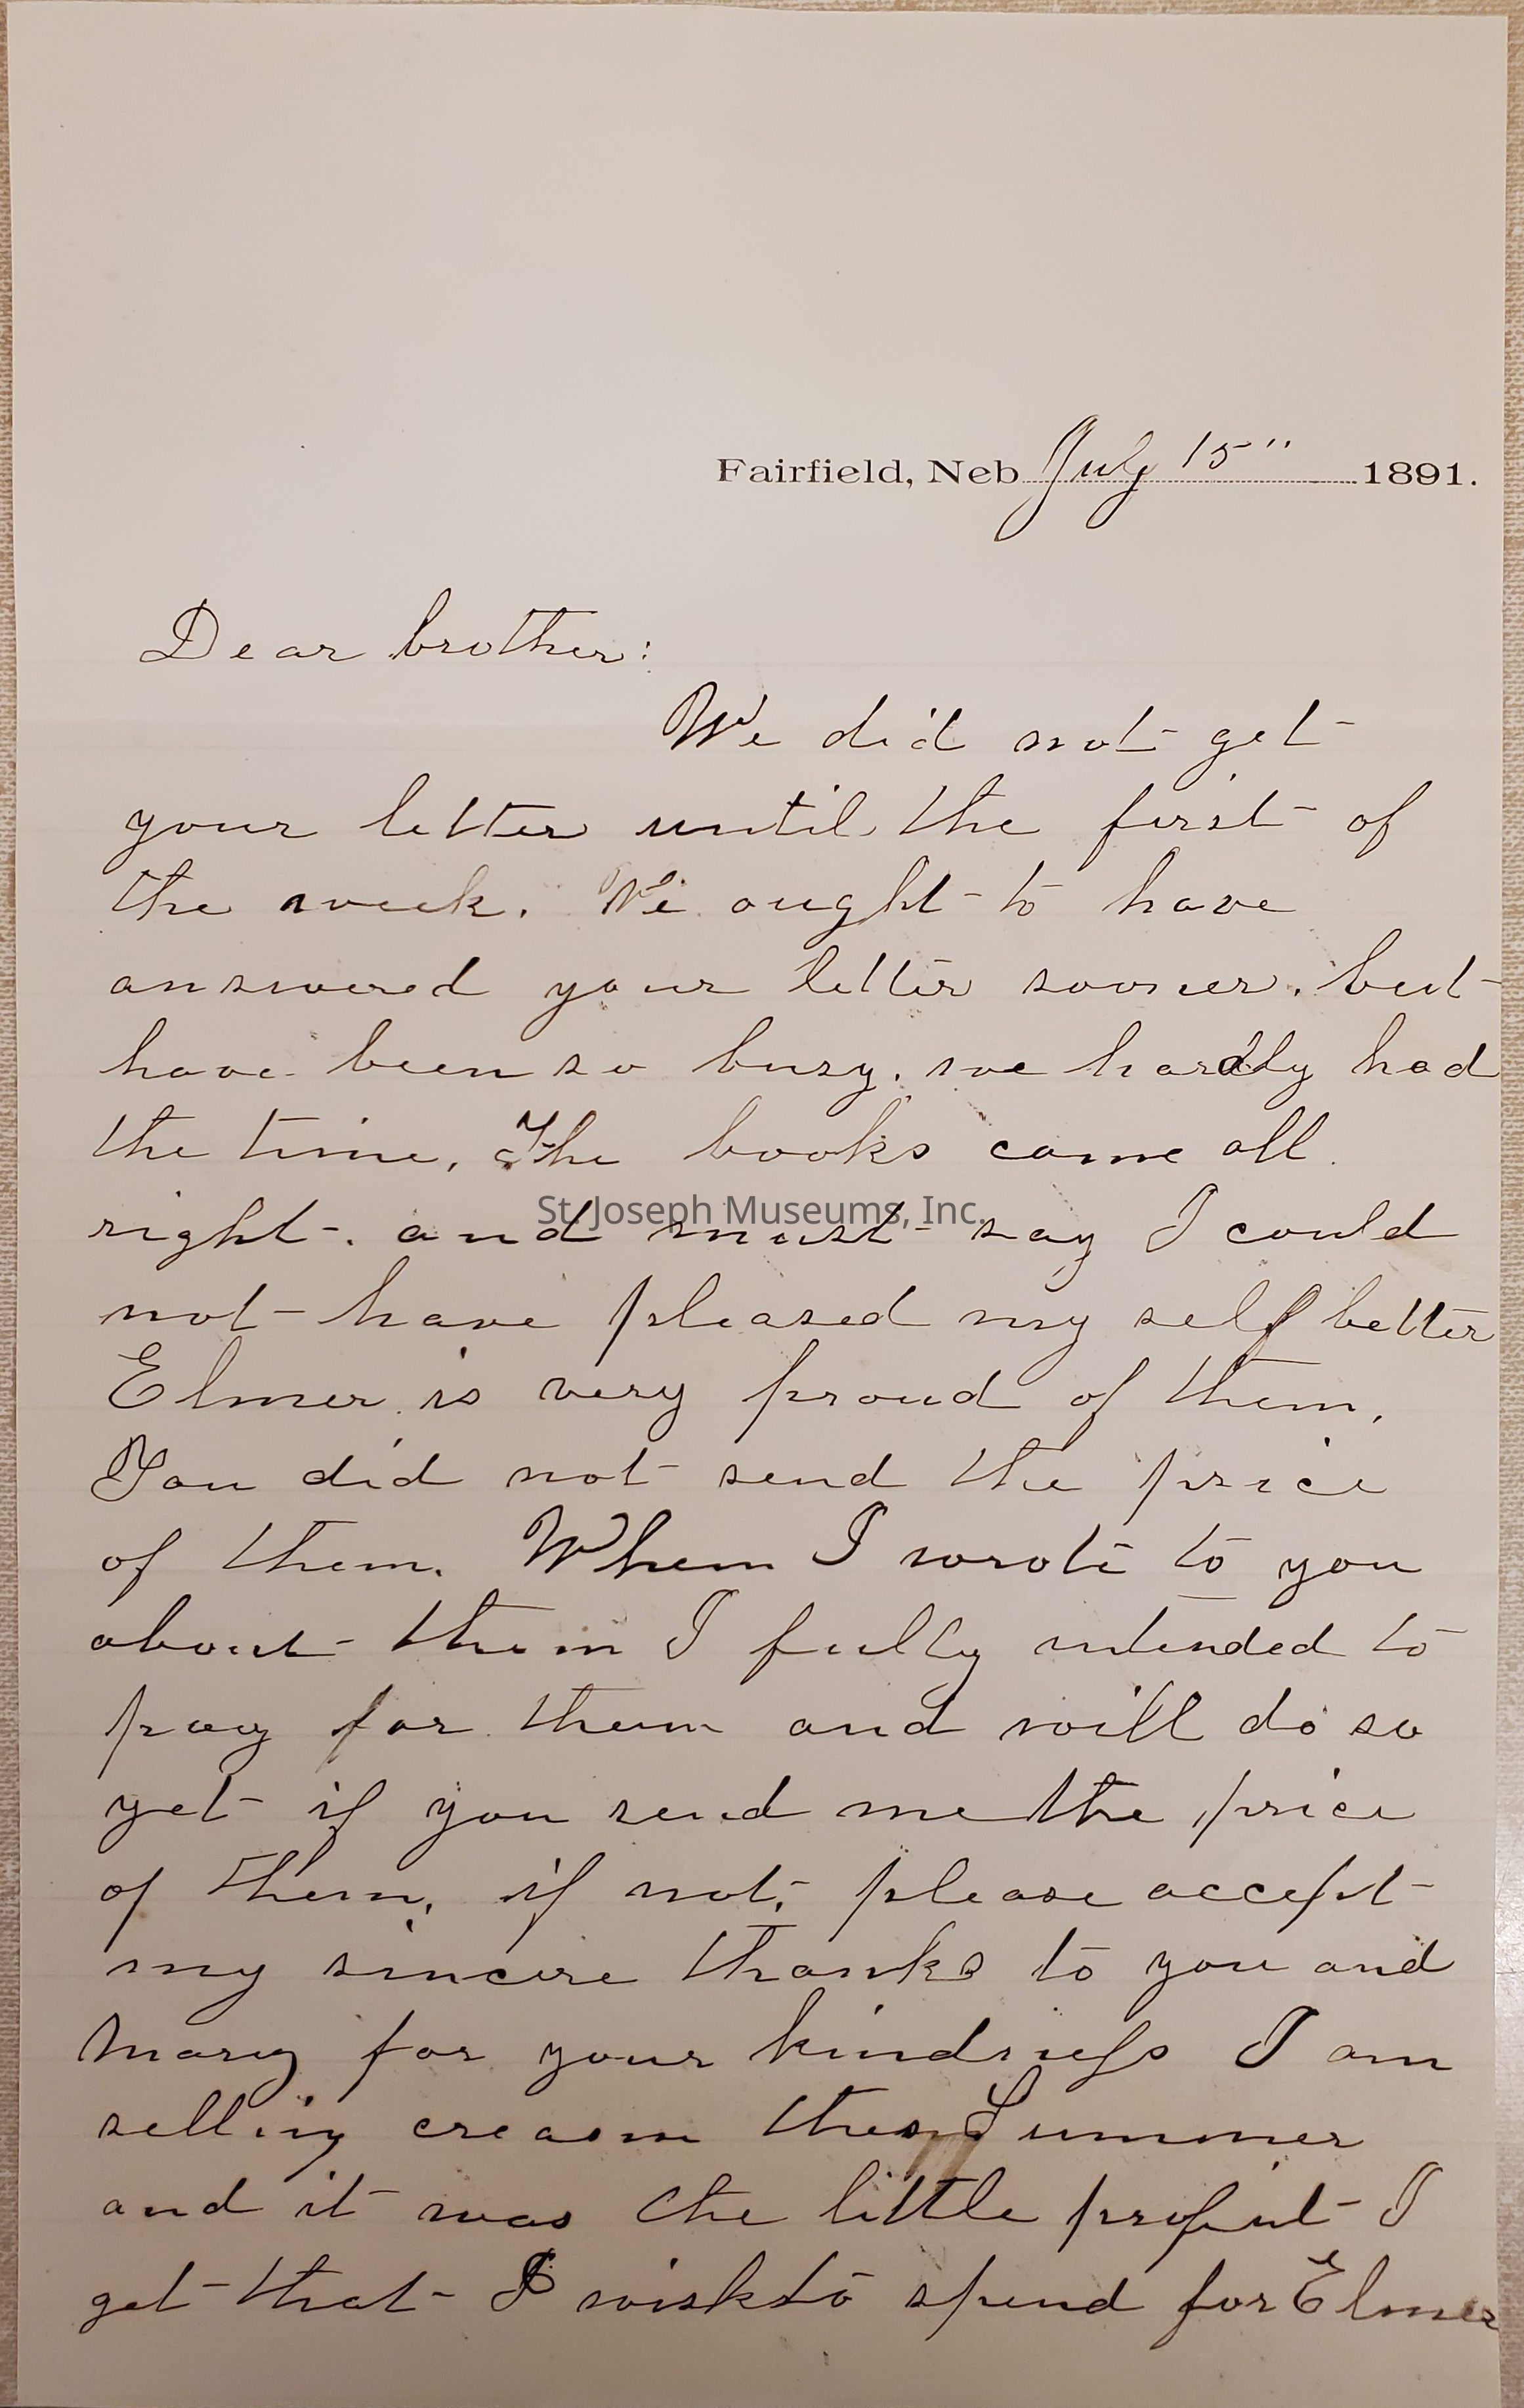 Fairfield, Neb. July 15" 1891.
Dear brother:
We did not get
your letter until the first of
the week. We ought to have
answered your letter sooner, but
have been so busy, we hardly had
the time, The books came all
St. Joseph Museums, Inc.
right, and must say I could
not have pleased my self better
Elmer is very proud of them,
You did not send the price
of them. When I wrote to you
about them I fully intended to
pay for them and will do so
yet if you send me the price
of them, if not, please accept
my sincere thanks to you and
Mary for your kindness I am
selling cream this Summer
and it was the little profit I
get that I wish to spend for Elmer